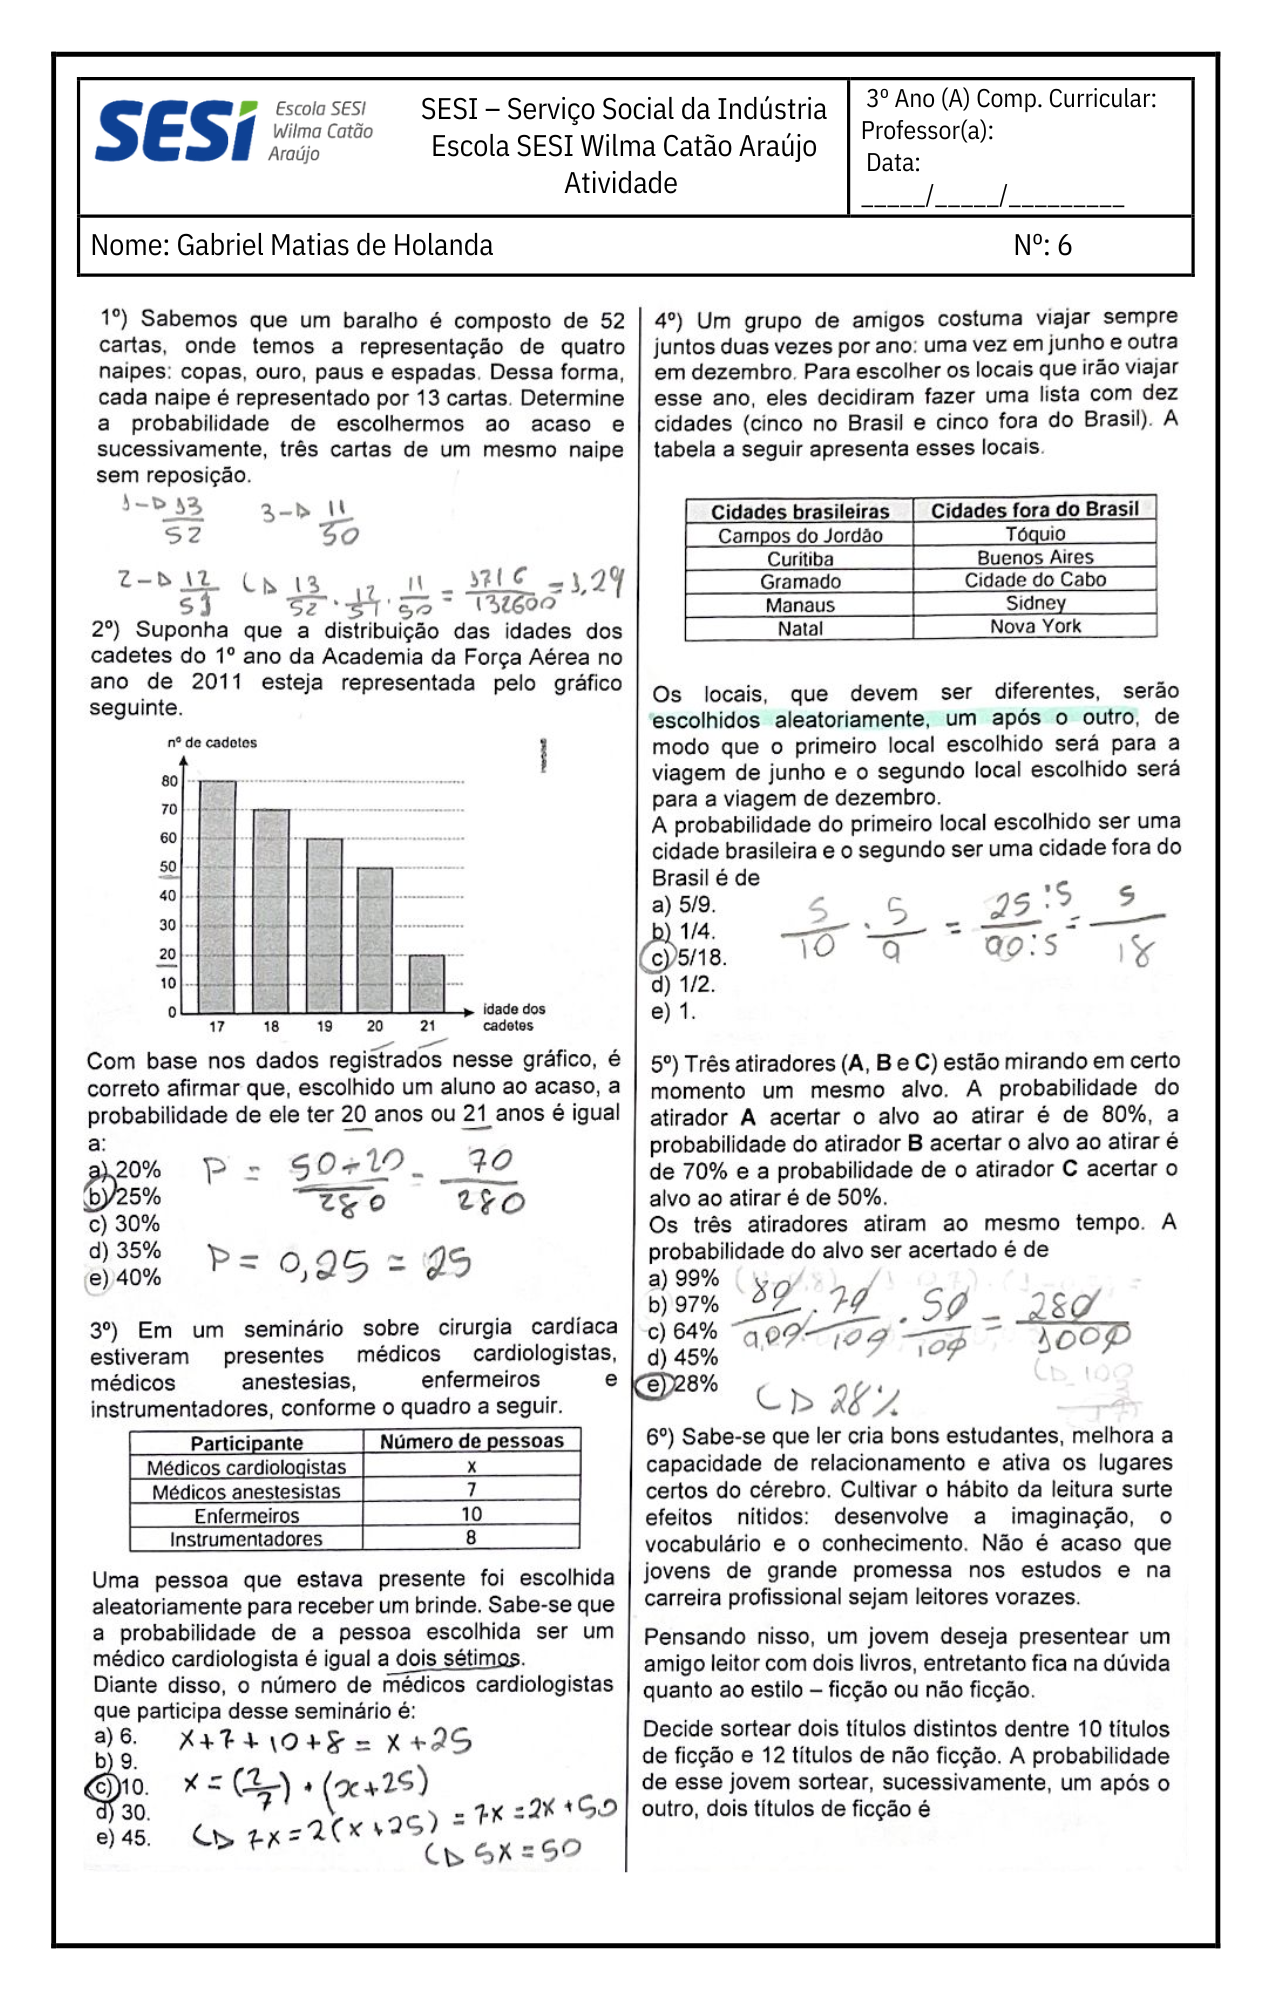 SESI
Escola SESI
Wilma Catão
Araújo
SESI – Serviço Social da Indústria
Escola SESI Wilma Catão Araújo
Atividade
3º Ano (A) Comp. Curricular:
Professor(a):
Data:
_____/_____/_________
Nome: Gabriel Matias de Holanda Nº: 6
1º) Sabemos que um baralho é composto de 52
cartas, onde temos a representação de quatro
naipes: copas, ouro, paus e espadas. Dessa forma,
cada naipe é representado por 13 cartas. Determine
a probabilidade de escolhermos ao acaso e
sucessivamente, três cartas de um mesmo naipe
sem reposição.
1 → 13/52 3 → 11/50
2 → 12/51 ↳ 13/52 . 12/51 . 11/50 = 1716/132600 = 1,29
2º) Suponha que a distribuição das idades dos
cadetes do 1º ano da Academia da Força Aérea no
ano de 2011 esteja representada pelo gráfico
seguinte.
nº de cadetes
80
70
60
50
40
30
20
10
0
17 18 19 20 21
idade dos
cadetes
Com base nos dados registrados nesse gráfico, é
correto afirmar que, escolhido um aluno ao acaso, a
probabilidade de ele ter 20 anos ou 21 anos é igual
a:
a) 20%
b) 25%
c) 30%
d) 35%
e) 40%
P = 50+20/280 = 70/280
P = 0,25 = 25
3º) Em um seminário sobre cirurgia cardíaca
estiveram presentes médicos cardiologistas,
médicos anestesias, enfermeiros e
instrumentadores, conforme o quadro a seguir.
Participante Número de pessoas
Médicos cardiologistas x
Médicos anestesistas 7
Enfermeiros 10
Instrumentadores 8
Uma pessoa que estava presente foi escolhida
aleatoriamente para receber um brinde. Sabe-se que
a probabilidade de a pessoa escolhida ser um
médico cardiologista é igual a dois sétimos.
Diante disso, o número de médicos cardiologistas
que participa desse seminário é:
a) 6.
b) 9.
c) 10.
d) 30.
e) 45.
x+7+10+8 = x+25
x = (2/7) . (x+25)
↳ 7x = 2(x+25) = 7x = 2x+50
↳ 5x = 50
4º) Um grupo de amigos costuma viajar sempre
juntos duas vezes por ano: uma vez em junho e outra
em dezembro. Para escolher os locais que irão viajar
esse ano, eles decidiram fazer uma lista com dez
cidades (cinco no Brasil e cinco fora do Brasil). A
tabela a seguir apresenta esses locais.
Cidades brasileiras Cidades fora do Brasil
Campos do Jordão Tóquio
Curitiba Buenos Aires
Gramado Cidade do Cabo
Manaus Sidney
Natal Nova York
Os locais, que devem ser diferentes, serão
escolhidos aleatoriamente, um após o outro, de
modo que o primeiro local escolhido será para a
viagem de junho e o segundo local escolhido será
para a viagem de dezembro.
A probabilidade do primeiro local escolhido ser uma
cidade brasileira e o segundo ser uma cidade fora do
Brasil é de
a) 5/9.
b) 1/4.
c) 5/18.
d) 1/2.
e) 1.
5/10 . 5/9 = 25:5/90:5 = 5/18
5º) Três atiradores (A, B e C) estão mirando em certo
momento um mesmo alvo. A probabilidade do
atirador A acertar o alvo ao atirar é de 80%, a
probabilidade do atirador B acertar o alvo ao atirar é
de 70% e a probabilidade de o atirador C acertar o
alvo ao atirar é de 50%.
Os três atiradores atiram ao mesmo tempo. A
probabilidade do alvo ser acertado é de
a) 99%
b) 97%
c) 64%
d) 45%
e) 28%
. 70/100 . 50/100 = 280/1000
↳ 28%
6º) Sabe-se que ler cria bons estudantes, melhora a
capacidade de relacionamento e ativa os lugares
certos do cérebro. Cultivar o hábito da leitura surte
efeitos nítidos: desenvolve a imaginação, o
vocabulário e o conhecimento. Não é acaso que
jovens de grande promessa nos estudos e na
carreira profissional sejam leitores vorazes.
Pensando nisso, um jovem deseja presentear um
amigo leitor com dois livros, entretanto fica na dúvida
quanto ao estilo – ficção ou não ficção.
Decide sortear dois títulos distintos dentre 10 títulos
de ficção e 12 títulos de não ficção. A probabilidade
de esse jovem sortear, sucessivamente, um após o
outro, dois títulos de ficção é